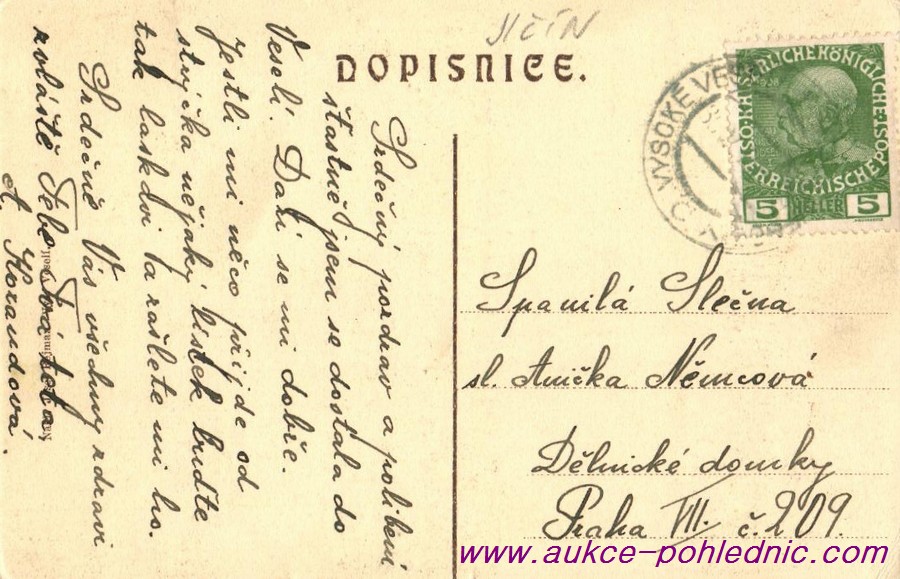 JIČÍN
DOPISNICE.
Srdečný pozdrav a políbení
šťastně jsem se dostala do
Veselí. Daří se mi dobře.
Jestli mi něco přijde od
strýčka nějaký lístek buďte
tak laskaví a zašlete mi ho.
Srdečně Vás všechny zdraví
zvláště Tebe
A. Horandová.
VYSOKÉ VESELÍ
5 HELLER 5
Spanilá Slečna
sl. Anička Němcová
Dělnické domky
Praha VII. č. 209
www.aukce-pohlednic.com